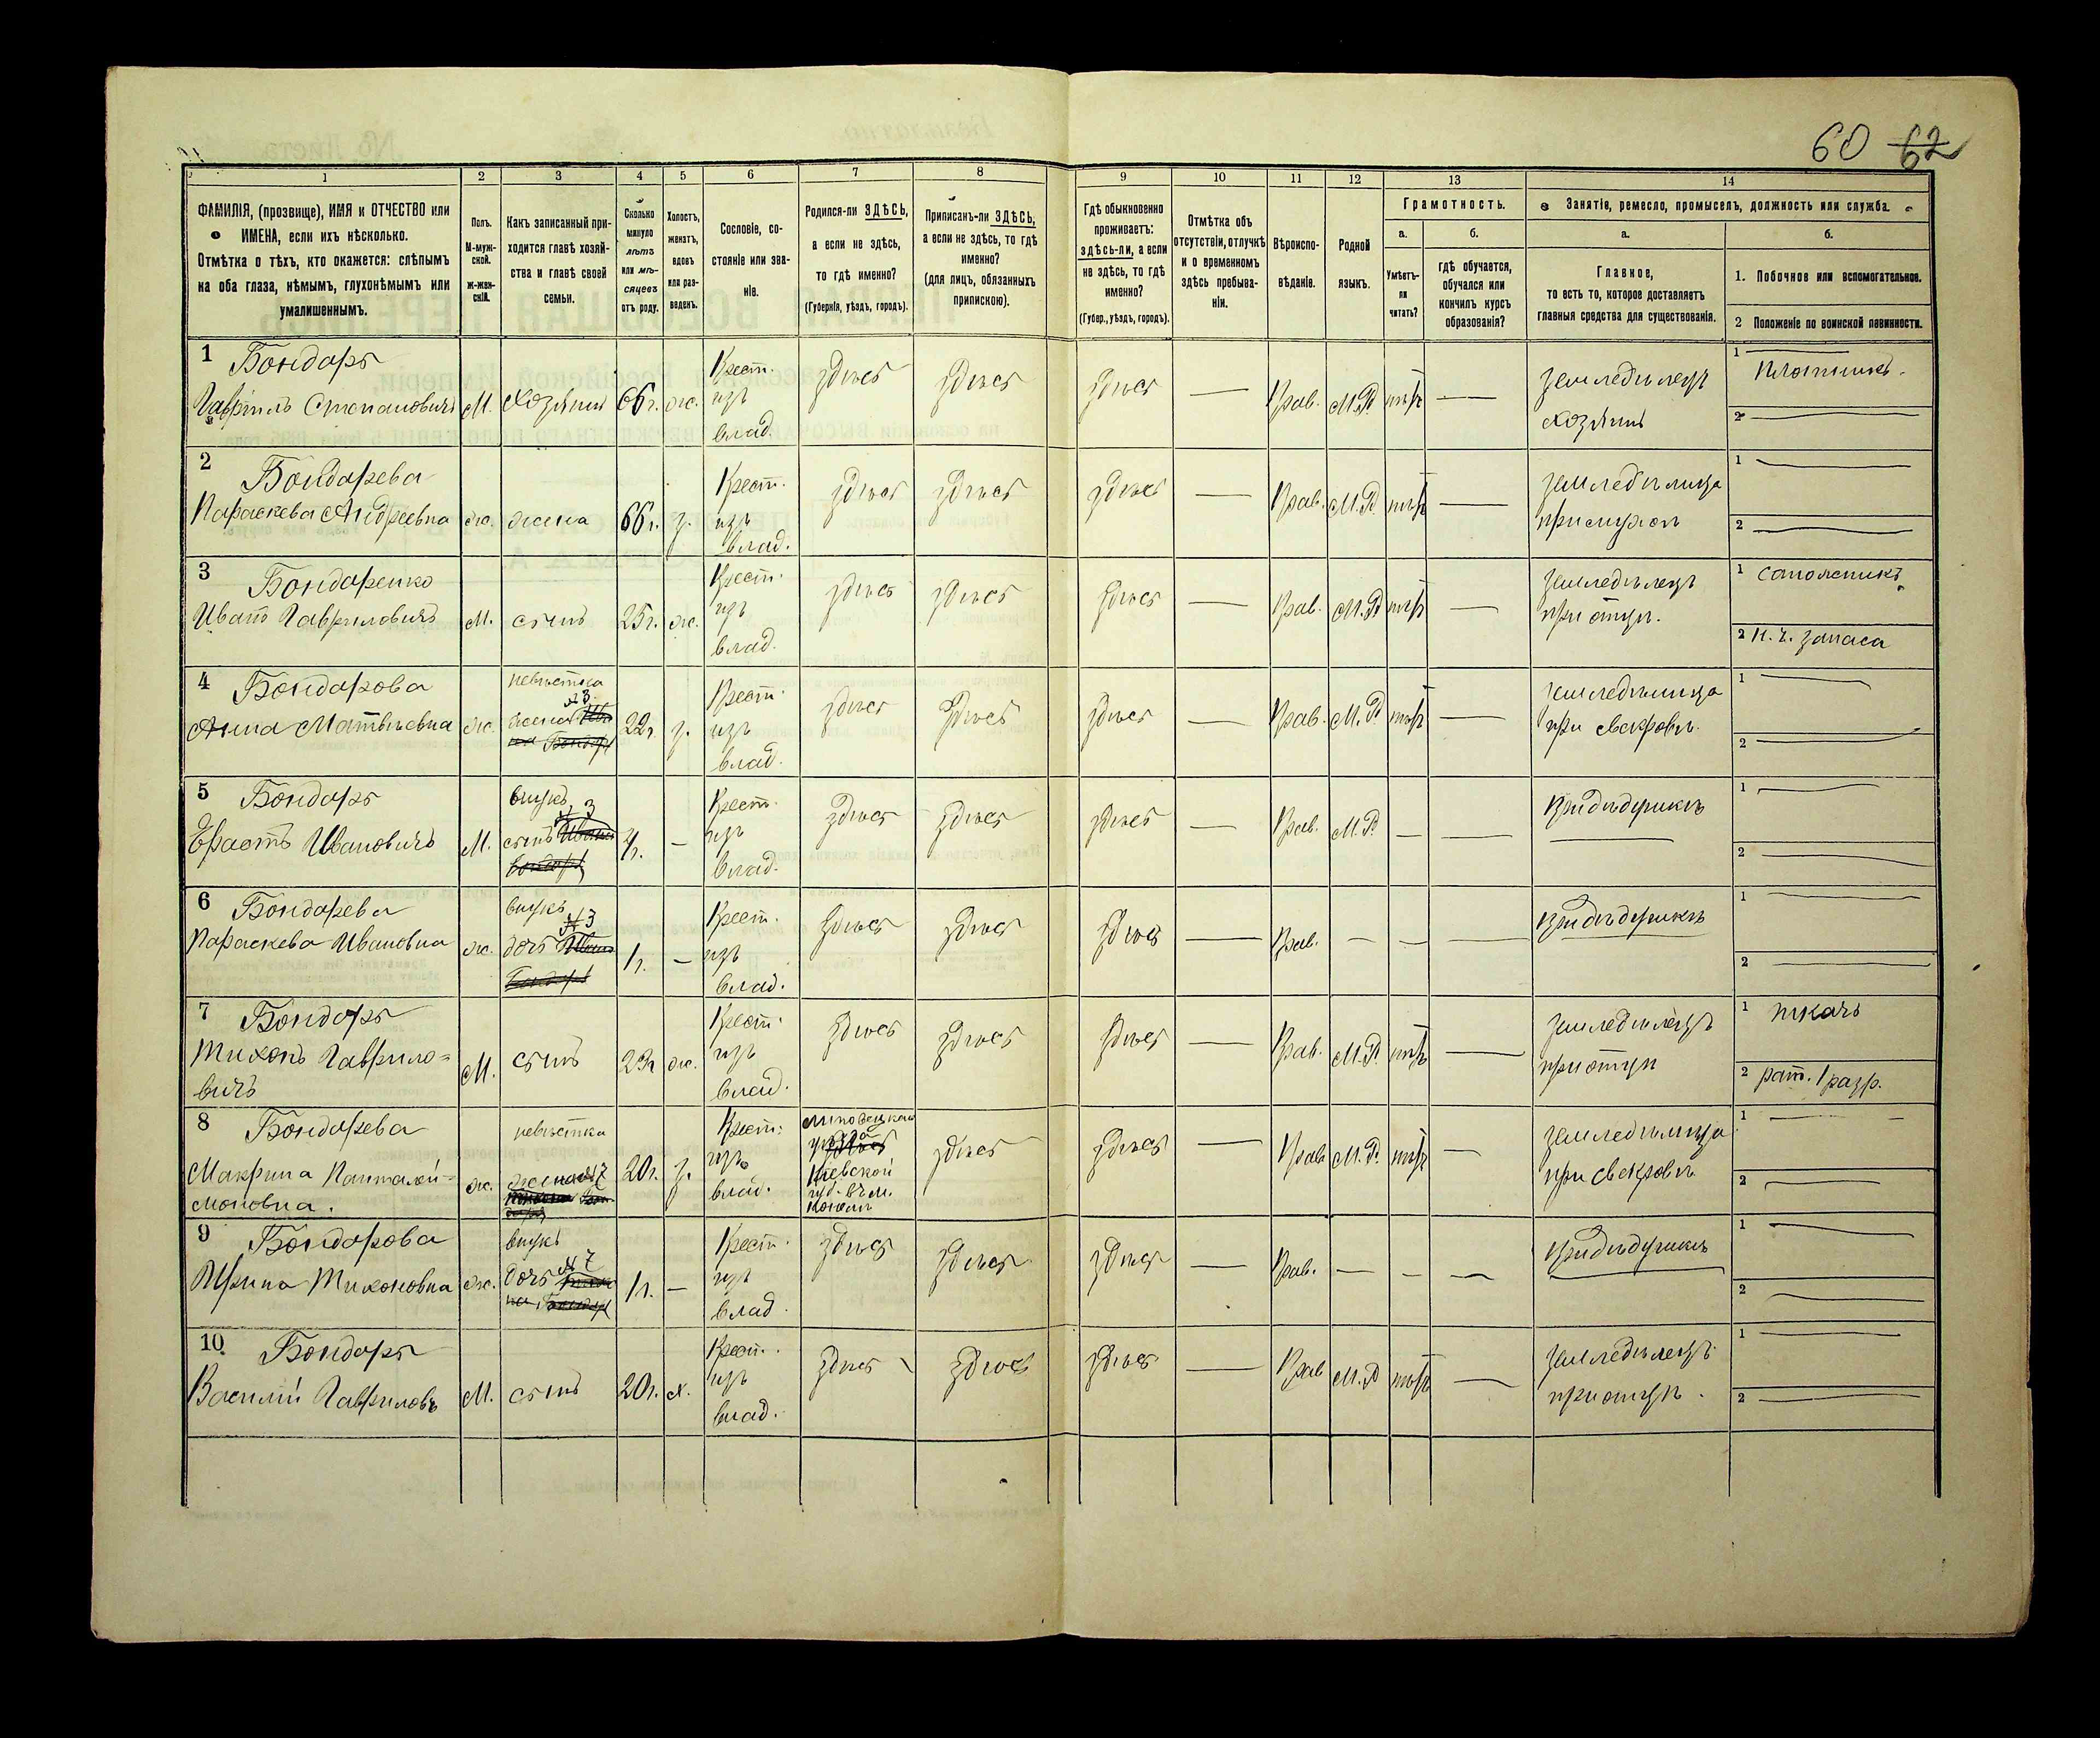 60 62
1
2
3
4
5
6
7
8
9
10
11
12
13
14
ФАМИЛІЯ, (прозвище), ИМЯ и ОТЧЕСТВО или
ИМЕНА, если ихъ нѣсколько.
Отмѣтка о тѣхъ, кто окажется: слѣпымъ
на оба глаза, нѣмымъ, глухонѣмымъ или
умалишеннымъ.
Полъ.
М-муж-
ской.
ж-жен-
скій.
Какъ записанный при-
ходится главѣ хозяй-
ства и главѣ своей
семьи.
Сколько
минуло
лѣтъ
или мѣ-
сяцевъ
отъ роду.
Холостъ,
женатъ,
вдовъ
или раз-
веденъ.
Сословіе, со-
стояніе или зва-
ніе.
Родился-ли ЗДѢСЬ,
а если не здѣсь,
то гдѣ именно?
(Губернія, уѣздъ, городъ).
Приписанъ-ли ЗДѢСЬ,
а если не здѣсь, то гдѣ
именно?
(для лицъ, обязанныхъ
припискою).
Гдѣ обыкновенно
проживаетъ:
здѣсь-ли, а если
не здѣсь, то гдѣ
именно?
(Губер., уѣздъ, городъ).
Отмѣтка объ
отсутствіи, отлучкѣ
и о временномъ
здѣсь пребыва-
ніи.
Вѣроиспо-
вѣданіе.
Родной
языкъ.
Грамотность.
а.
Умѣетъ-
ли
читать?
б.
гдѣ обучается,
обучался или
кончилъ курсъ
образованія?
Занятіе, ремесло, промыселъ, должность или служба.
а.
Главное,
то есть то, которое доставляетъ
главныя средства для существованія.
б.
1. Побочное или вспомогательное.
2 Положеніе по воинской повинности.
1 Бондарь
Гаврiилъ Степановичъ М. Хозяинъ 66 г. ж. Крест. изъ влад. Здѣсь Здѣсь Здѣсь — Прав. М.Р. нѣтъ —
Земледѣлецъ
хозяинъ
1 Плотникъ.
2 —
2 Бондарева
Параскева Андреевна ж. жена 66 г. з. Крест. изъ влад. Здѣсь Здѣсь Здѣсь — Прав. М.Р. нѣтъ —
Земледѣлица
при мужѣ
1 —
2 —
3 Бондаренко
Иванъ Гавриловичъ М. сынъ 25 г. ж. Крест. изъ влад. Здѣсь Здѣсь Здѣсь — Прав. М.Р. нѣтъ —
Земледѣлецъ
при отцѣ.
1 Сапожникъ
2 н. ч. запаса
4 Бондарова
Анна Матвѣевна ж. невѣстка жена №3 22 г. з. Крест. изъ влад. Здѣсь Здѣсь Здѣсь — Прав. М.Р. нѣтъ —
Земледѣлица
при свекровѣ.
1 —
2 —
5 Бондарь
Ерастъ Ивановичъ М. внукъ сынъ №3 — Крест. изъ влад. Здѣсь Здѣсь Здѣсь — Прав. М.Р. — —
При дѣдушкѣ
1 —
2 —
6 Бондарева
Параскева Ивановна ж. внукъ дочь №3 1 г. — Крест. изъ влад. Здѣсь Здѣсь Здѣсь — Прав. — — —
При дѣдушкѣ
1 —
2 —
7 Бондарь
Тихонъ Гаврило=
вичъ М. сынъ 23 г. ж. Крест. изъ влад. Здѣсь Здѣсь Здѣсь — Прав. М.Р. нѣтъ —
Земледѣлецъ
при отцѣ
1 ткачъ
2 рат. 1 разр.
8 Бондарева
Макрина Панталей-
моновна. ж. невѣстка жена №7 20 г. з. Крест. изъ влад. Липовецкаго уѣзда Кіевской губ. въ м. Здѣсь Здѣсь — Прав. М.Р. нѣтъ —
Земледѣлица
при свекровѣ
1 —
2 —
9 Бондарова
Ирина Тихоновна ж. внукъ дочь №7 1 г. — Крест. изъ влад. Здѣсь Здѣсь Здѣсь — Прав. — — —
При дѣдушкѣ
1 —
2 —
10 Бондарь
Василій Гавриловъ М. сынъ 20 г. х. Крест. изъ влад. Здѣсь Здѣсь Здѣсь — Прав М.Р нѣтъ —
Земледѣлецъ
при отцѣ.
1 —
2 —